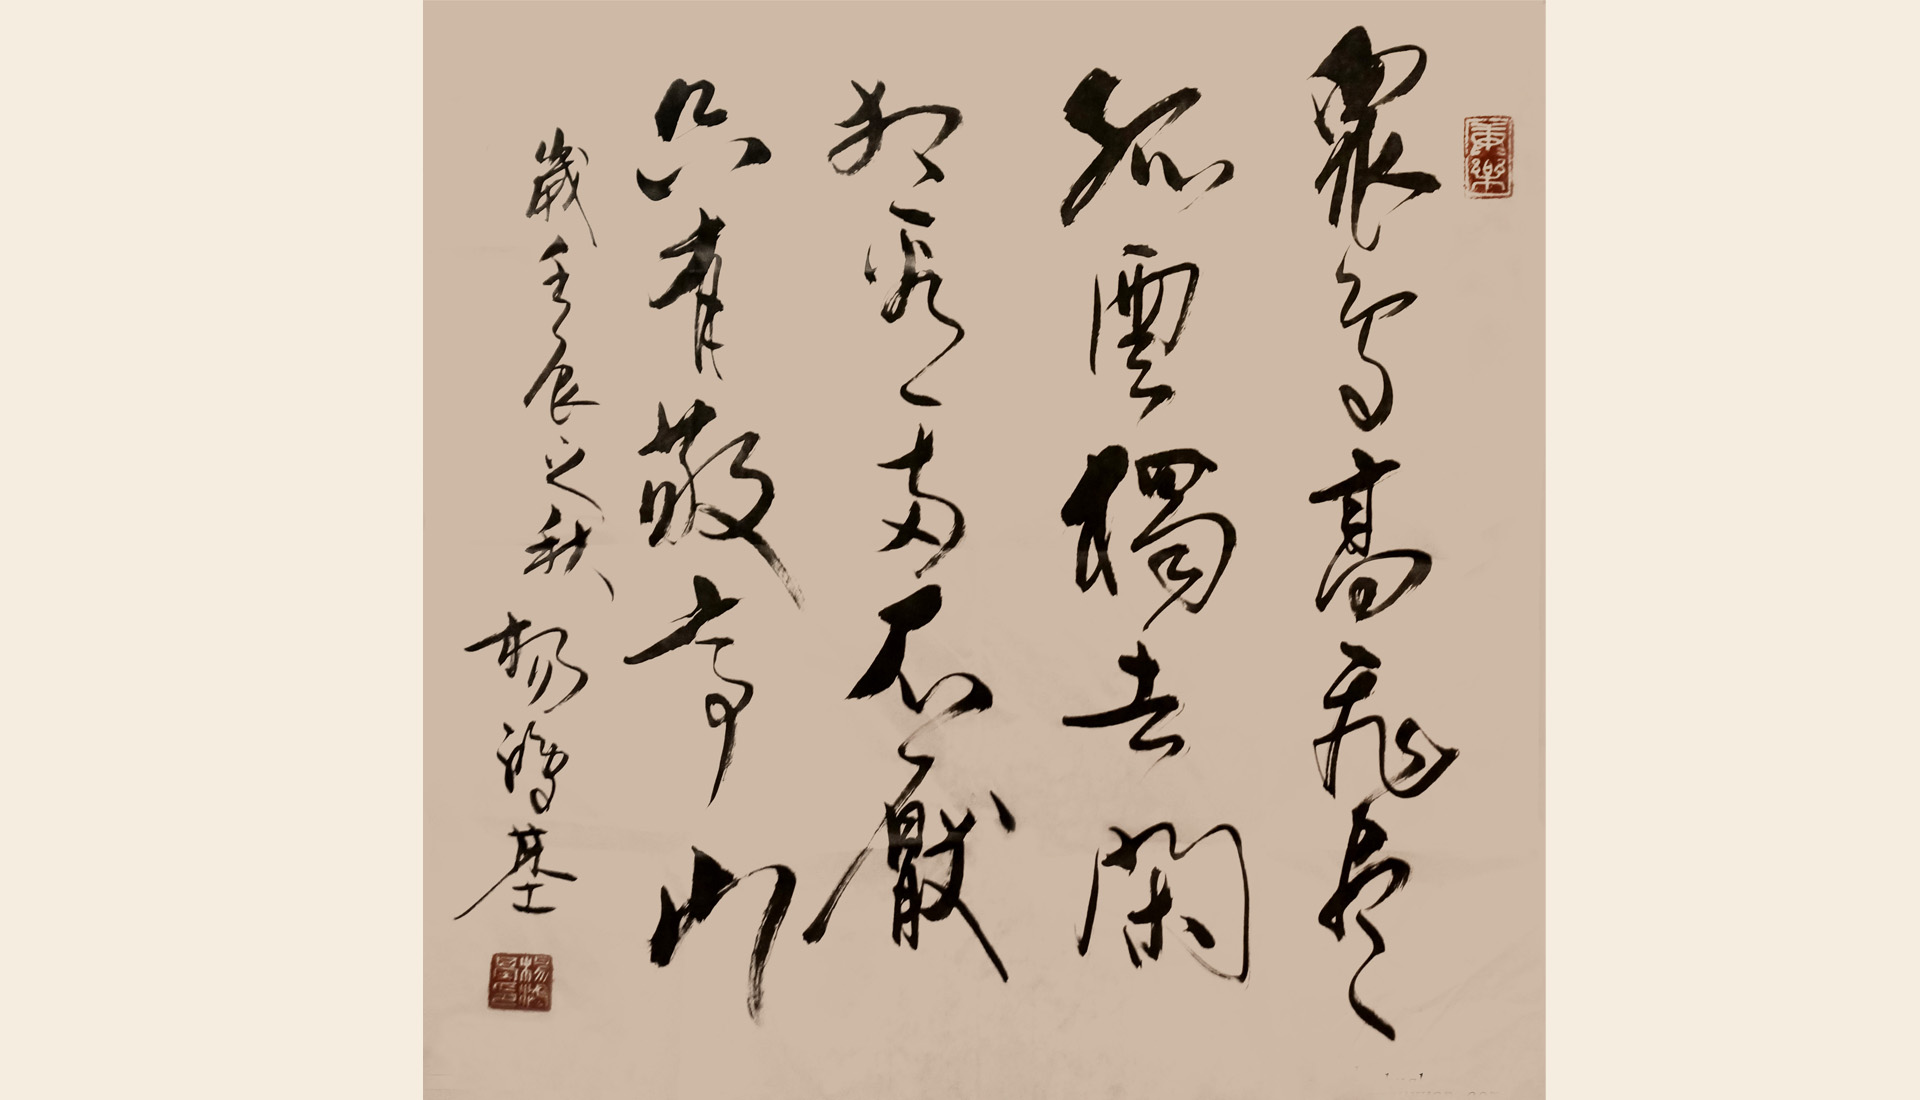 眾鳥高飛盡
孤雲獨去閑
相看兩不厭
只有敬亭山
歲壬辰之秋 楊鴻基